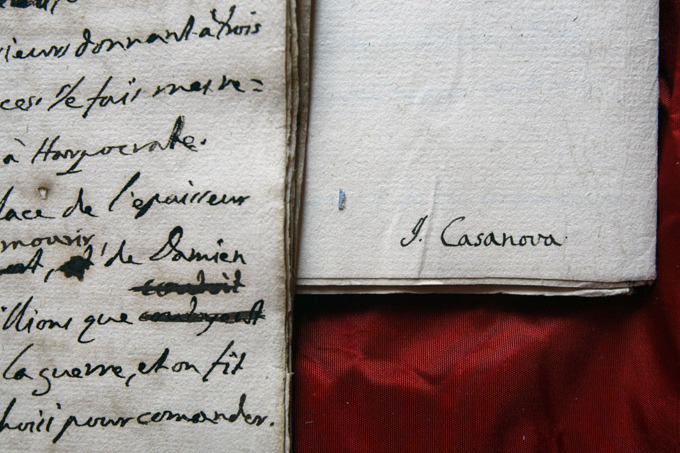 sieurs donnant à trois
ces: Je fais mes re=
à Harpocrate.
lace de l'épaisseur
mourir
et de Damien
couloit
llions que
la guerre, et on fit
hoisi pour comander.
J. Casanova